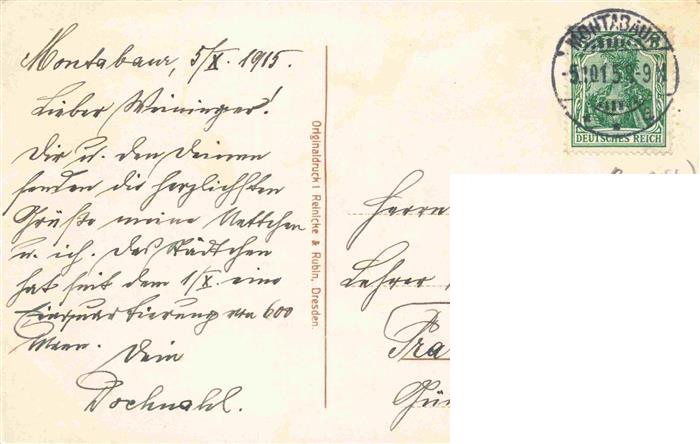 Montabaur, 5/X. 1915.
Lieber Weininger!
Dir u. den Deinen
senden die herzlichsten
Grüße meine Nettchen
u. ich. Das Städtchen
hat seit dem 1/X. eine
Einquartierung von 600
Mann. Dein
Dochnahl.
Originaldruck i Reinicke & Rubin, Dresden.
MONTABAUR
-5.10.15.8-9 N
DEUTSCHES REICH
Herrn
Lehrer